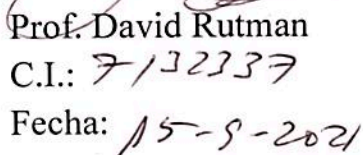 Prof. David Rutman
C.I.: 7132337
Fecha: 15-9-2021